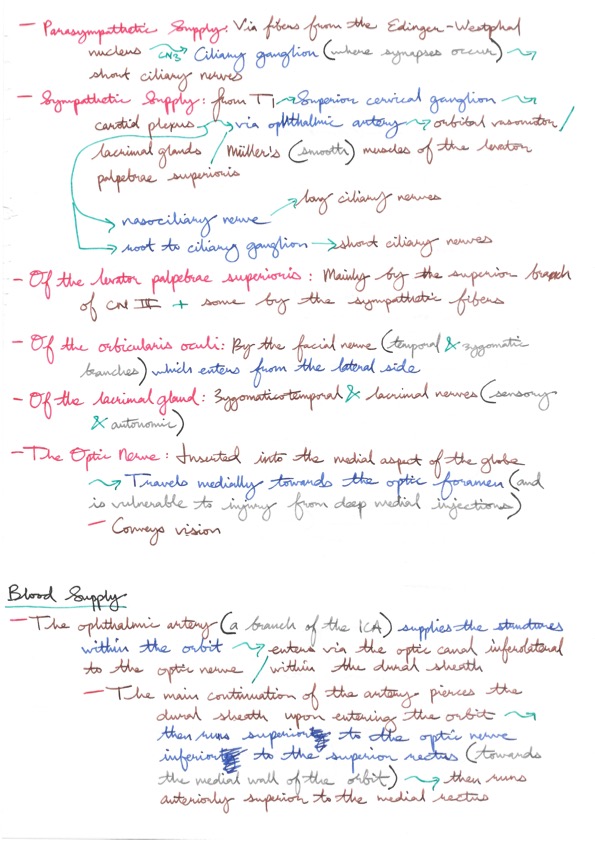 – Parasympathetic Supply: Via fibers from the Edinger-Westphal
nucleus CN3 → Ciliary ganglion (where synapses occur) →
short ciliary nerves
– Sympathetic Supply: from T1 → Superior cervical ganglion →
carotid plexus → via ophthalmic artery → orbital vasomotor /
lacrimal glands / Müller's (smooth) muscles of the levator
palpebrae superioris
→ long ciliary nerves
→ nasociliary nerve
→ root to ciliary ganglion → short ciliary nerves
– Of the levator palpebrae superioris: Mainly by the superior branch
of CN III + some by the sympathetic fibers
– Of the orbicularis oculi: By the facial nerve (temporal & zygomatic
branches) which enters from the lateral side
– Of the lacrimal gland: Zygomaticotemporal & lacrimal nerves (sensory
& autonomic)
– The Optic Nerve: Inserted into the medial aspect of the globe
→ Travels medially towards the optic foramen (and
is vulnerable to injury from deep medial injections)
– Conveys vision
Blood Supply
– The ophthalmic artery (a branch of the ICA) supplies the structures
within the orbit → enters via the optic canal inferolateral
to the optic nerve / within the dural sheath
– The main continuation of the artery pierces the
dural sheath upon entering the orbit →
then runs superior to the optic nerve
inferior to the superior rectus (towards
the medial wall of the orbit) → then runs
anteriorly superior to the medial rectus